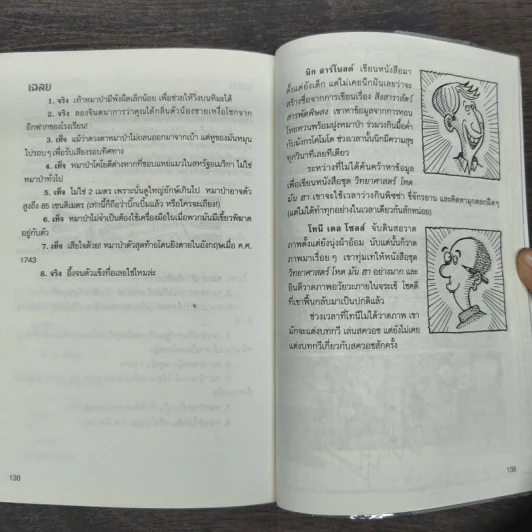 เฉลย
1. จริง เท้าหมาป่ามีพังผืดเล็กน้อย เพื่อช่วยให้วิ่งบนหิมะได้
2. จริง ลองจินตนาการว่าคุณได้กลิ่นตัวน้องชายเหงื่อโชกจาก
อีกฟากของโรงเรียน!
3. เท็จ แม้ว่าดวงตาหมาป่าไม่ถลนออกมาจากเบ้า แต่หูของมันหมุน
ไปรอบๆ เพื่อรับเสียงรอบทิศทาง
4. เท็จ หมาป่าโคโยตีต่างหากที่ชอบแทะแมวในสหรัฐอเมริกา ไม่ใช่
หมาป่าทั่วไป
5. เท็จ ไม่ใช่ 2 เมตร เพราะนั่นดูใหญ่ยักษ์เกินไป หมาป่าอาจตัว
สูงถึง 85 เซนติเมตร (เท่านี้ก็ถือว่าบิ๊กเบิ้มแล้ว หรือใครจะเถียง!)
6. เท็จ หมาป่าไม่จำเป็นต้องใช้เครื่องมือในเมื่อพวกมันมีเขี้ยวพิฆาต
อยู่กับตัว
7. เท็จ เสียใจด้วย! หมาป่าตัวสุดท้ายโดนยิงตายในอังกฤษเมื่อ ค.ศ.
1743
8. จริง อึ้งจนตัวแข็งทื่อเลยใช่ไหมล่ะ
138
นิก อาร์โนลด์ เขียนหนังสือมา
ตั้งแต่ยังเด็ก แต่ไม่เคยนึกฝันเลยว่าจะ
สร้างชื่อจากการเขียนเรื่อง สิงสาราสัตว์
สารพัดพิษสง เขาหาข้อมูลจากการหอน
โหยหวนพร้อมฝูงหมาป่า ร่วมวงกินมื้อค่ำ
กับมังกรโคโมโด ช่วงเวลานั้นนิกมีความสุข
ทุกวินาทีเลยทีเดียว
ระหว่างที่ไม่ได้ค้นคว้าหาข้อมูล
เพื่อเขียนหนังสือชุด วิทยาศาสตร์ โหด
มัน ฮา เขาจะใช้เวลาว่างกินพิซซ่า ขี่จักรยาน และคิดหามุกตลกฝืดๆ
(แต่ไม่ได้ทำทุกอย่างในเวลาเดียวกันสักหน่อย)
โทนี เดอ โซลส์ จับดินสอวาด
ภาพตั้งแต่ยังนุ่งผ้าอ้อม นับแต่นั้นก็วาด
ภาพมาเรื่อยๆ เขาทุ่มเทให้หนังสือชุด
วิทยาศาสตร์ โหด มัน ฮา อย่างมาก และ
ยินดีวาดภาพอวัยวะภายในจระเข้ โชคดี
ที่เขาฟื้นกลับมาเป็นปกติแล้ว
ช่วงเวลาที่โทนีไม่ได้วาดภาพ เขา
มักจะแต่งบทกวี เล่นสควอช แต่ยังไม่เคย
แต่งบทกวีเกี่ยวกับสควอชสักครั้ง
139